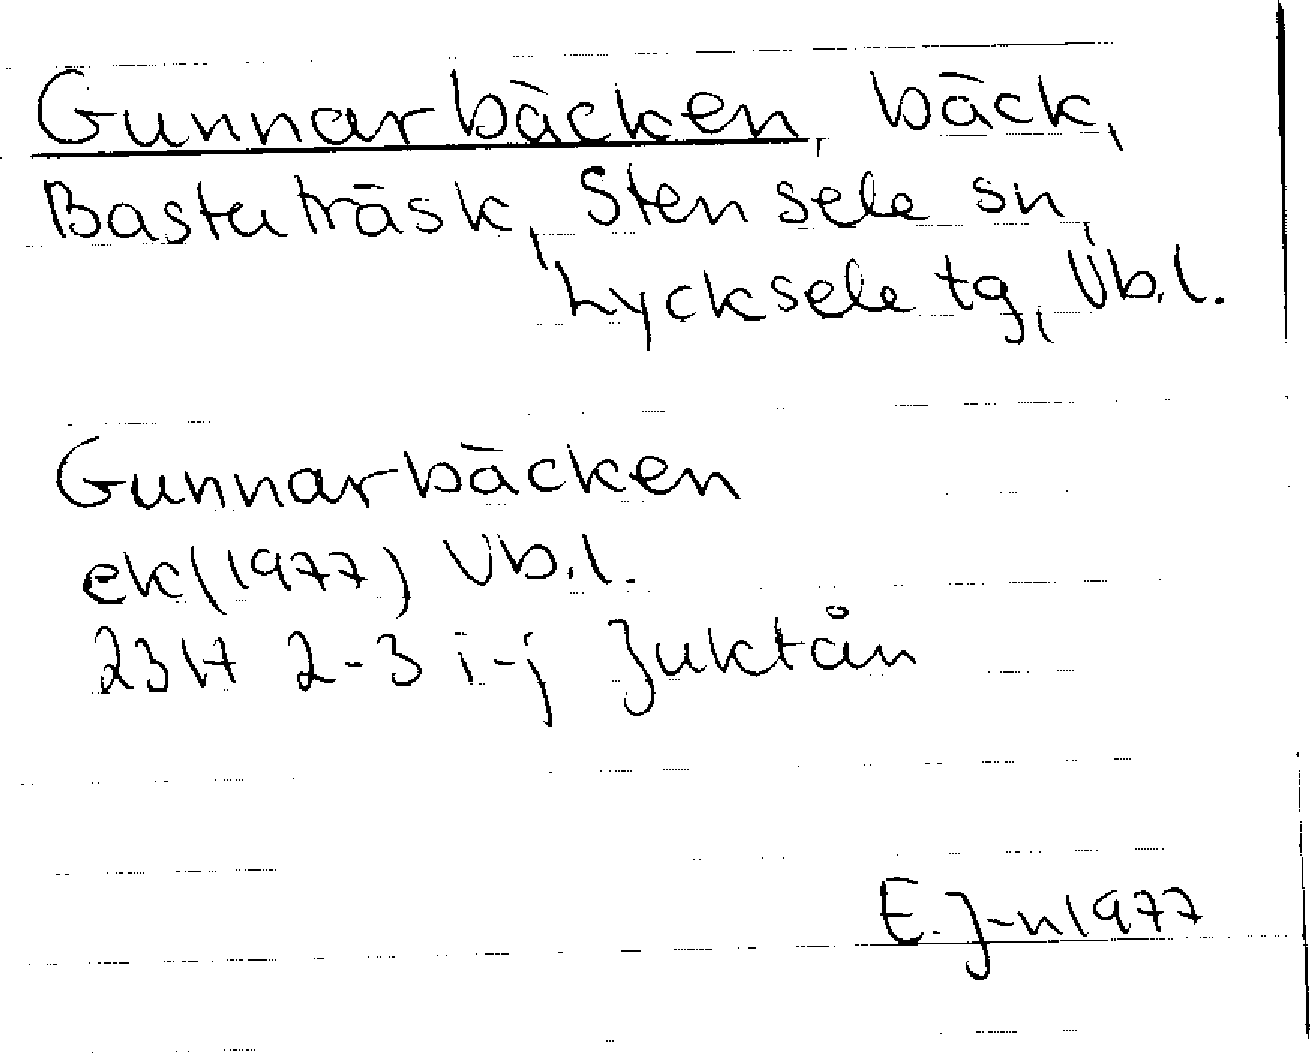 Gunnarbäcken, bäck,
Bastuträsk, Stensele sn,
Lycksele tg, Vb.l.
Gunnarbäcken
ek(1977) Vb.l.
23H 2-3 i-j Juktån
E.J-n 1977